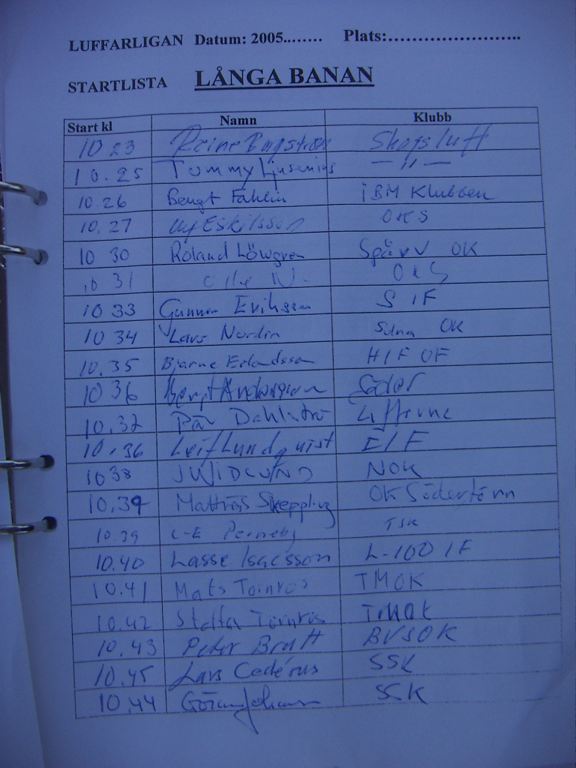 LUFFARLIGAN Datum: 2005........ Plats:........................
STARTLISTA LÅNGA BANAN
Start kl Namn Klubb
10 23 Skogsluft
10.25 Tommy —"—
10.26 Bengt Fahlin IBM Klubben
10.27 Eskilsson OKS
10 30 Roland Löwgren Spårv OK
10 31 Olle N. OKS
10 33 Gunnar Eriksson SIF
10 34 Lars Nordin OK
10.35 Bjarne Erlandsson HIF OF
10 36 Bengt
10.37 Pär
10.36 Leif Lundquist EIF
10 38 NOK
10.39 Mattias OK Södertörn
10.39 L-E TSK
10.40 Lasse Isacsson L-100 IF
10.41 Mats Törnros TMOK
10.42 Törnros TMOK
10.43 Peter Bratt BVSOK
10.45 Lars Cedérus SSK
10.44 Göran Johansson SSK